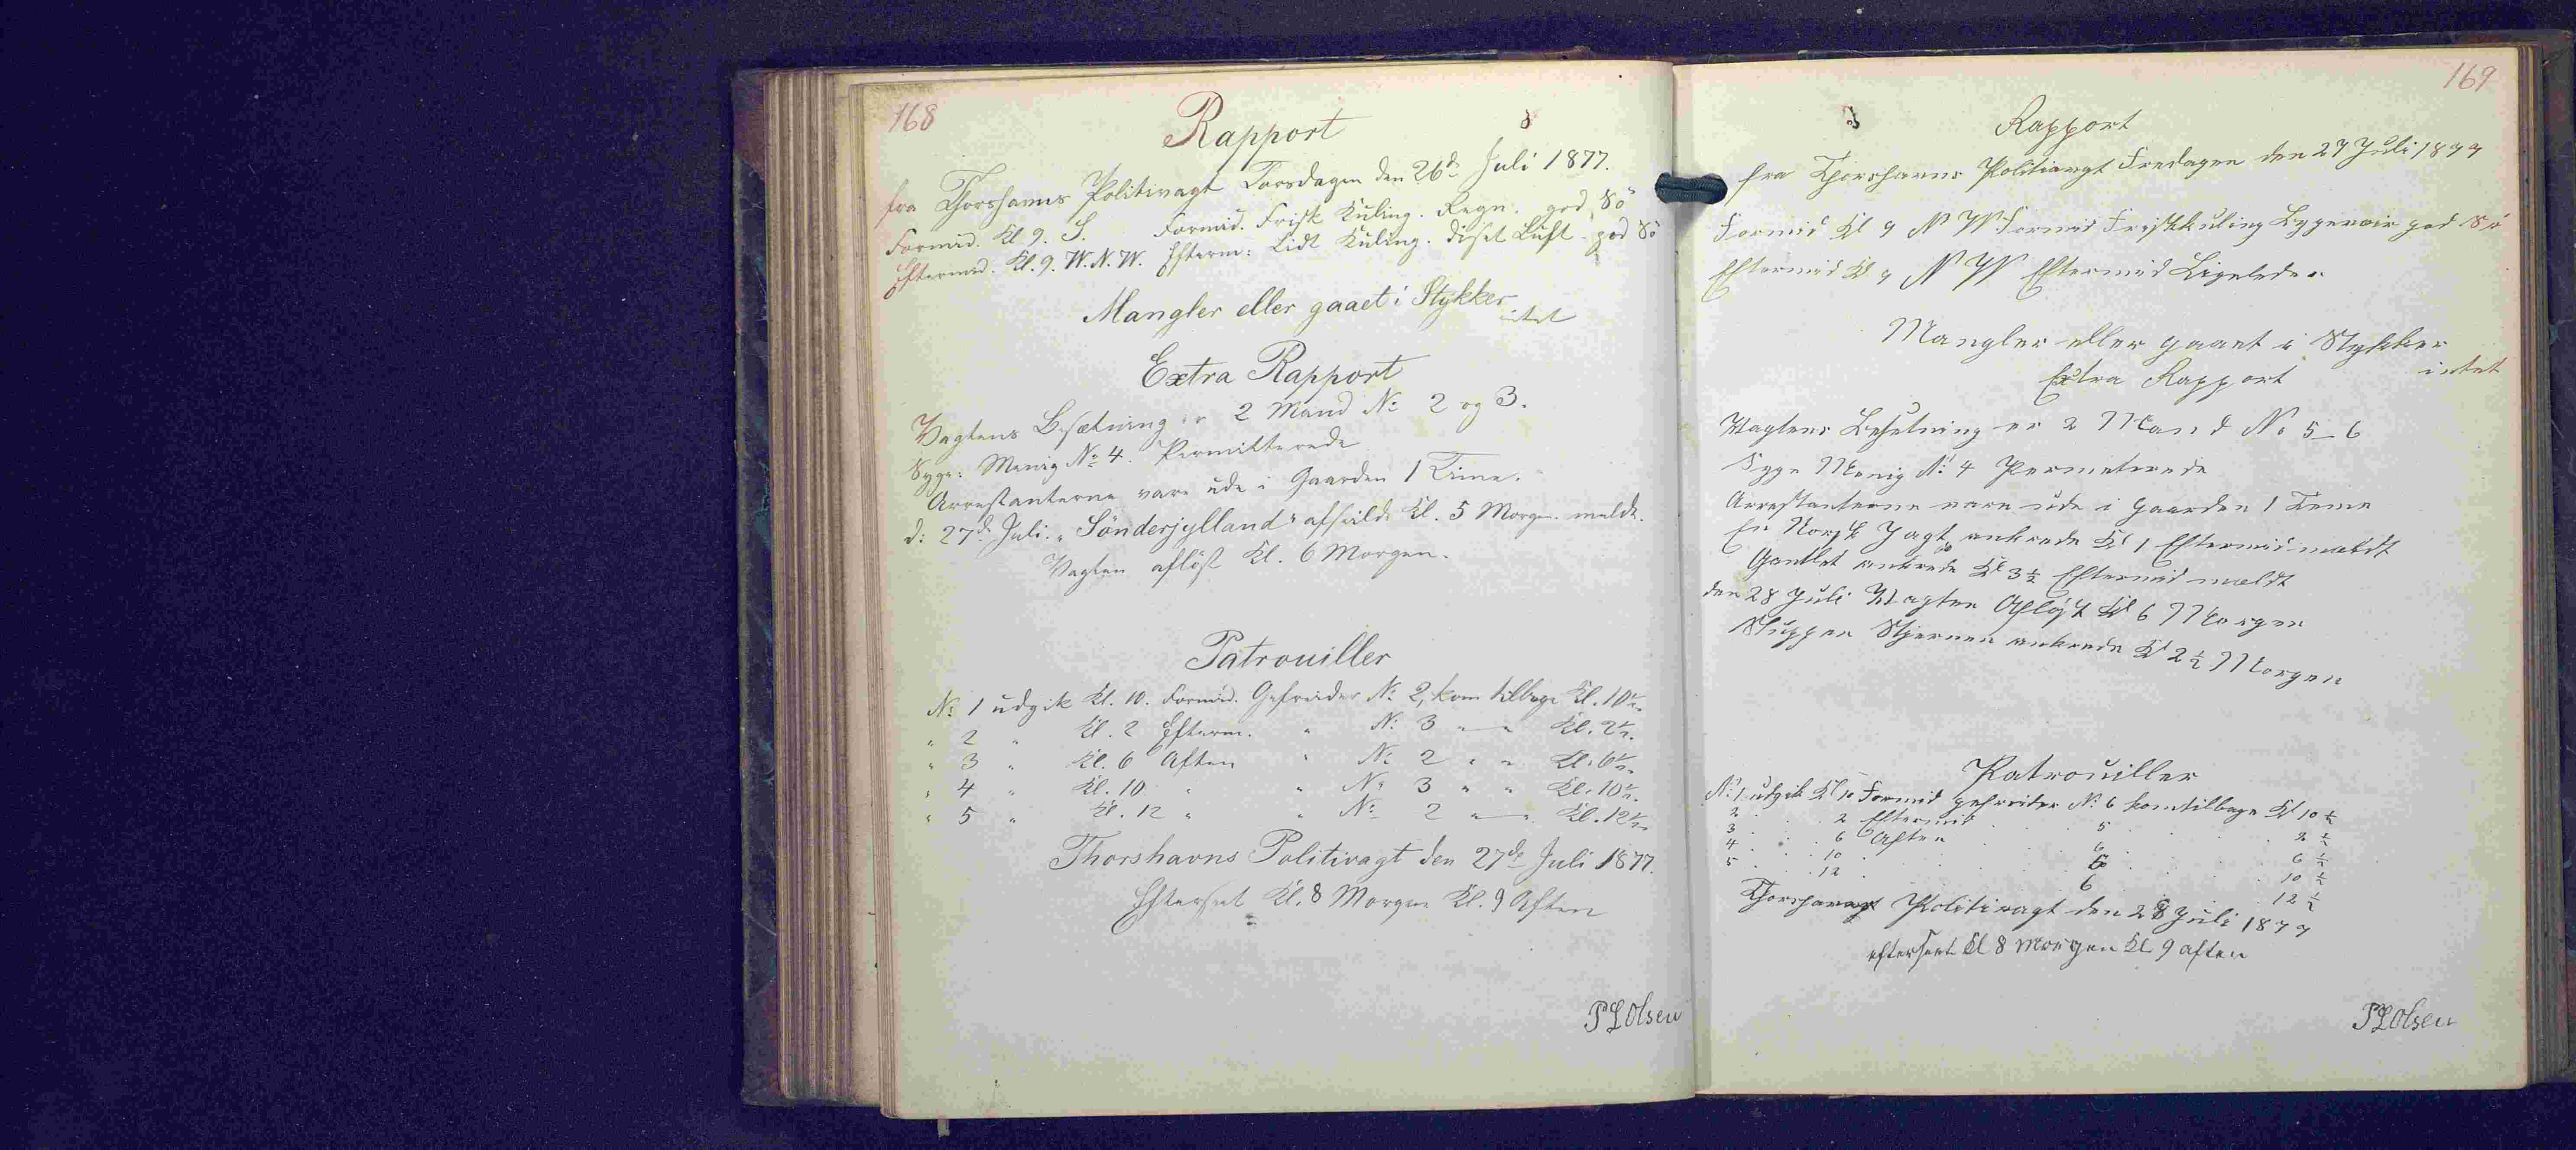 168
Rapport
fra Thorshavns Politivagt Torsdagen den 26de Juli 1877.
Formid. Kl. 9. S. Formid. Frisk Kuling. Regn. god Sö
Eftermid. Kl. 9. W.N.W. Efterm: Lidt Kuling. diset Luft. god Sö
Mangler eller gaaet i Stykker
intet
Extra Rapport
Vagtens Besætning er 2 Mand No 2 og 3.
Syge: Menig No 4. Permitterede
Arrestanterne vare ude i Gaarden 1 Time.
d: 27de Juli. "Sönderjylland" afseilede Kl. 5 Morgen meldt.
Vagten aflöst Kl. 6 Morgen.
Patrouiller
No 1 udgik Kl. 10. Formid. Gefreider No 2, kom tilbage Kl. 10½.
" 2 " Kl. 2 Efterm. " No 3 " " Kl. 2½.
" 3 " Kl. 6 Aften " No 2 " " Kl. 6½.
" 4 " Kl. 10 " " No 3 " " Kl. 10½.
" 5 " Kl. 12 " " No 2 " " Kl. 12½.
Thorshavns Politivagt den 27de Juli 1877.
Efterseet Kl. 8 Morgen Kl. 9 Aften
PLOlsen
169
Rapport
fra Thorshavns Politivagt Fredagen den 27 Juli 1877
Formid Kl 9 N W Formid Friskkuling Bygeveir god Sö
Eftermid Kl 9 N W Eftermid Ligeledes
Mangler eller gaaet i Stykker
intet
Extra Rapport
Vagtens Besetning er 2 Mand No 5-6
Syge Menig No 4 Permeterede
Arrestanterne vare ude i gaarden 1 Teme
En Norsk Jagt ankrede Kl 1 Eftermid meldt
ankrede Kl 3½ Eftermid meldt
den 28 Juli Vagten Aflöst Kl 6 Morgen
Sluppen Stjernen ankrede Kl 2½ Morgen
Patrouiller
No 1 udgik Kl 10 Formid gefreider No 6 kom tilbage Kl 10½
2 . . 2 Eftermid . . 5 . . 2½
3 . . 6 Aften . . 6 . . 6½
4 . . 10 . . 5 . . 10½
5 . . 12 . . 6 . . 12½
Politivagt den 28 Juli 1877
efterseet Kl 8 Morgen Kl 9 aften
PLOlsen